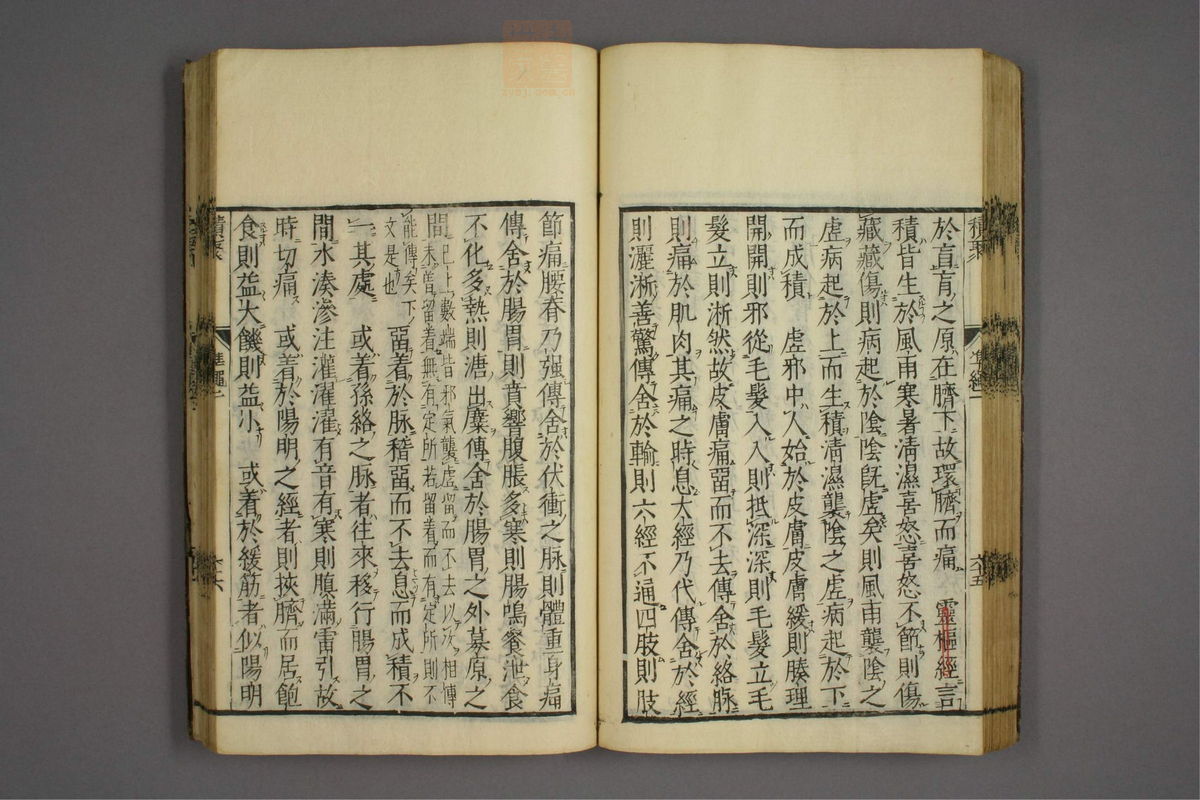 積聚
準繩一
六十五
於肓肓之原在臍下故環臍而痛　靈樞經言
積皆生於風雨寒暑清濕喜怒喜怒不節則傷
藏藏傷則病起於陰陰旣虛矣則風雨襲陰之
虛病起於上而生積清濕襲陰之虛病起於下
而成積　虛邪中人始於皮膚皮膚緩則腠理
開開則邪從毛髮入入則抵深深則毛髮立毛
髮立則淅然故皮膚痛留而不去傳舍於絡脉
則痛於肌肉其痛之時息大經乃代傳舍於經
則灑淅善驚傳舍於輸則六經不通四肢則肢
節痛腰脊乃强傳舍於伏衝之脉則體重身痛
傳舍於腸胃則賁響腹脹多寒則腸鳴飧泄食
不化多熱則溏出麋傳舍於腸胃之外募原之
間已上數端皆邪氣襲虛留而不去以次相傳
未曾留着無有定所若留着而有定所則不
能傳矣下
文是也
留着於脉稽留而不去息而成積不
一其處　或着孫絡之脉者往來移行腸胃之
間水湊滲注灌濯濯有音有寒則䐜滿雷引故
時切痛　或着於陽明之經者則挾臍而居飽
食則益大饑則益小　或着於緩筋者似陽明
積聚
準繩一